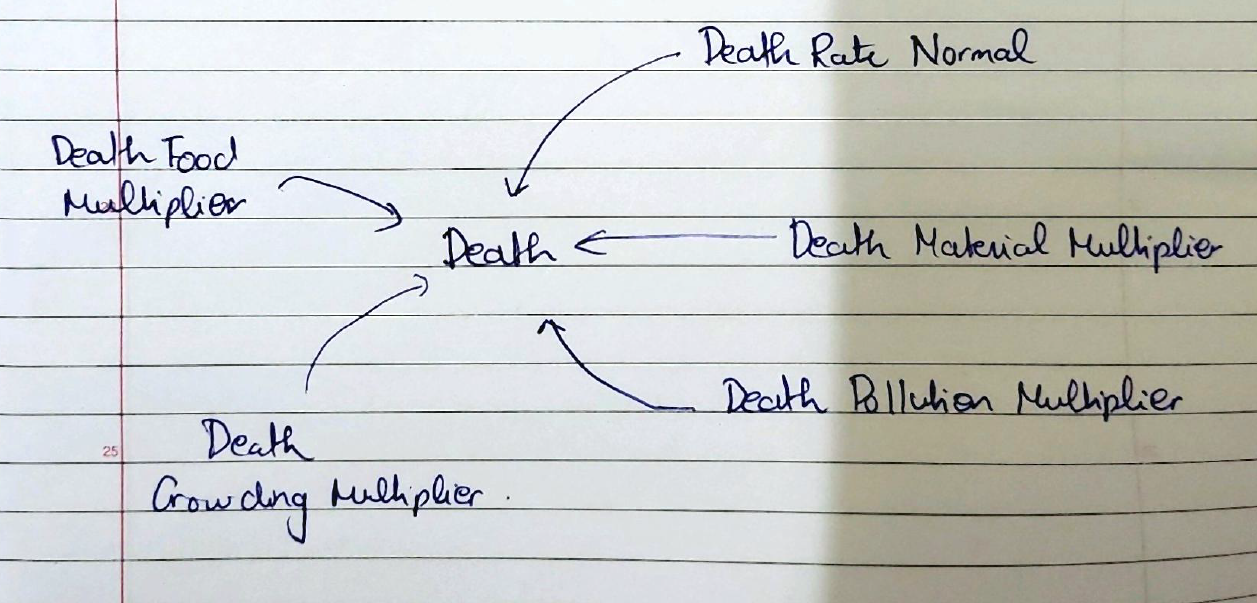 Death Rate Normal
Death Food
Multiplier
Death
Death Material Multiplier
Death Pollution Multiplier
Death
Crowding Multiplier .
25